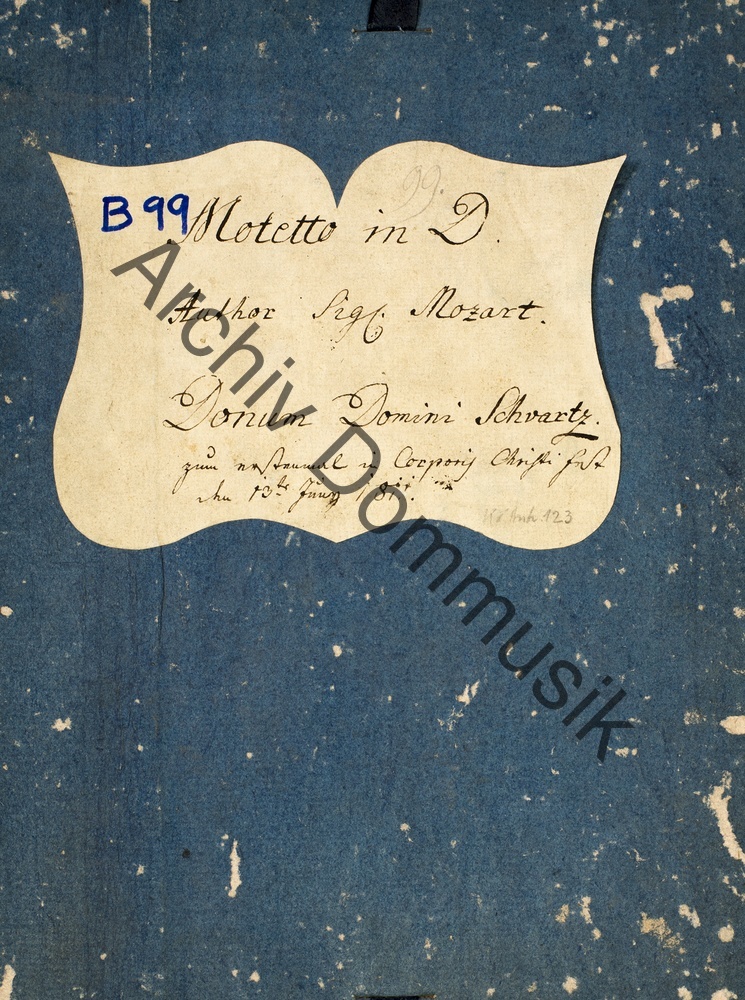 99.
B 99
Motetto in D.
Author Sigl. Mozart.
Donum Domini Schvartz.
zum erstenmal in Corporis Christi fest
den 13te Juny
KV Anh. 123
Archiv Dommusik